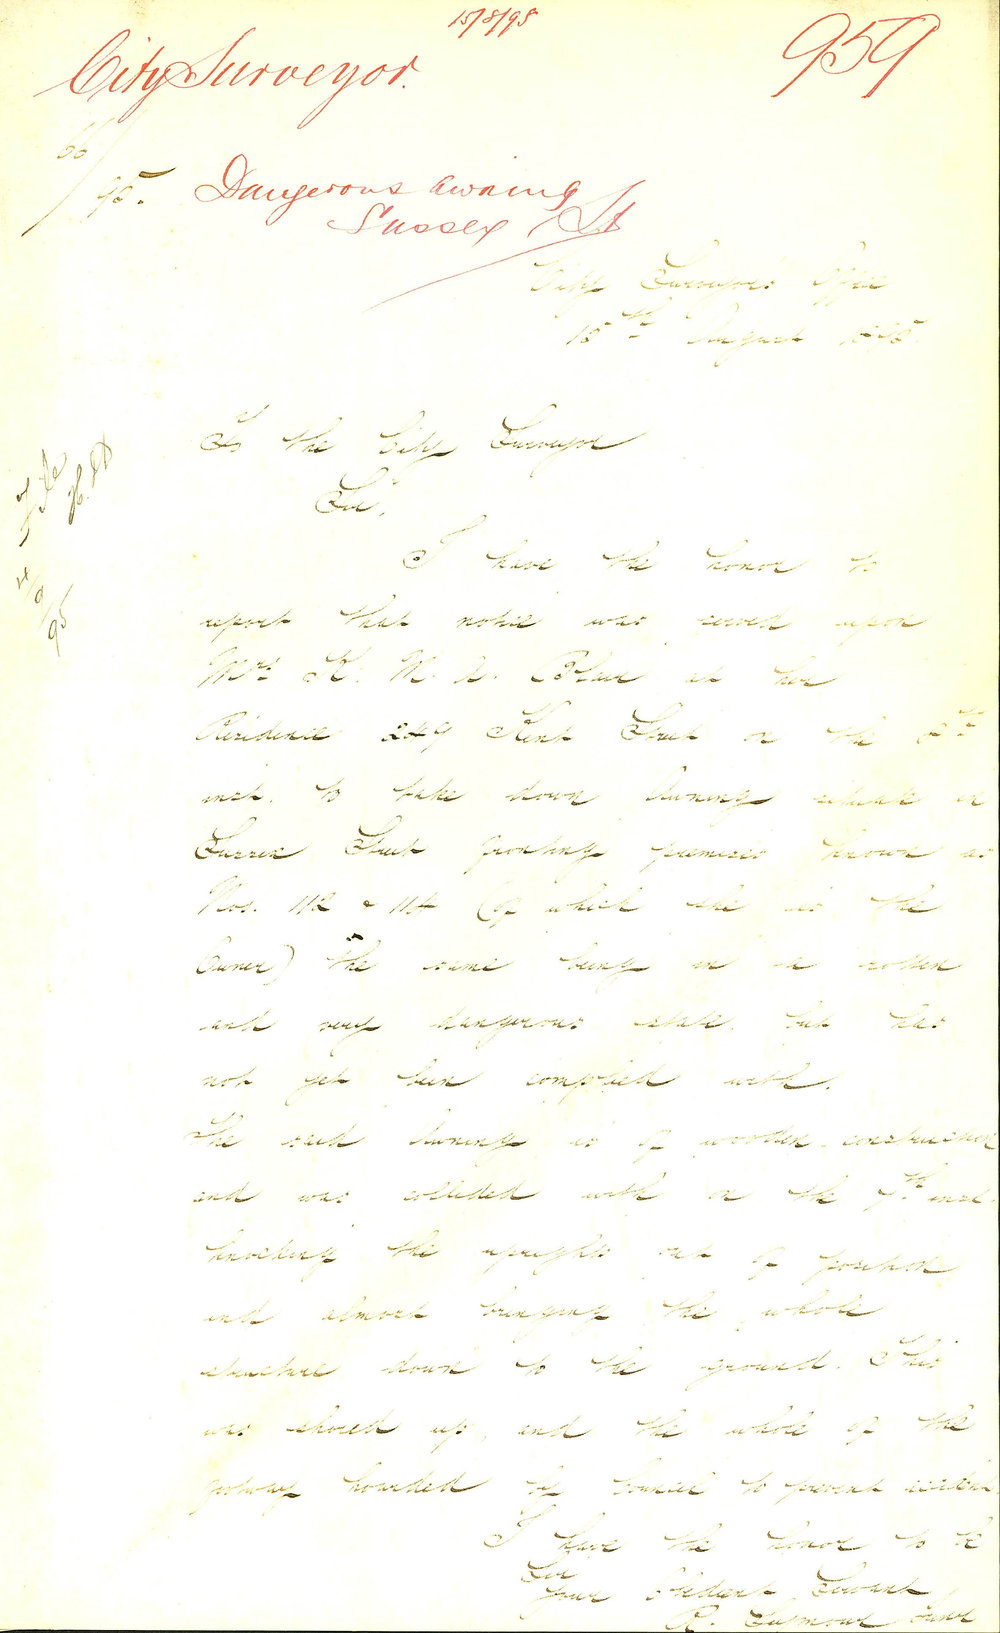 15/8/95
City Surveyor.
959
95.
Dangerous awning
Sussex St
City Surveyor's Office
15th August 1895.
To the City Surveyor
Sir,
I have the honor to
report that notice was served upon
Mrs K. M. A. Blair at her
Residence 249 Kent Street on the
inst. to take down Awning situate in
Sussex Street fronting premises known as
Nos. 112 & 114 (of which she is the
Owner) the same being in a rotten
and very dangerous state. but has
not yet been complied with.
The said Awning is of wooden construction
and was collided with on the 7th inst.
knocking the uprights out of position
and almost bringing the whole
structure down to the ground. This
was shored up, and the whole of the
footway hoarded by Council to prevent accident.
I have the honor to be
Sir
Your Obedient Servant
R. Seymour
File
4/9/95